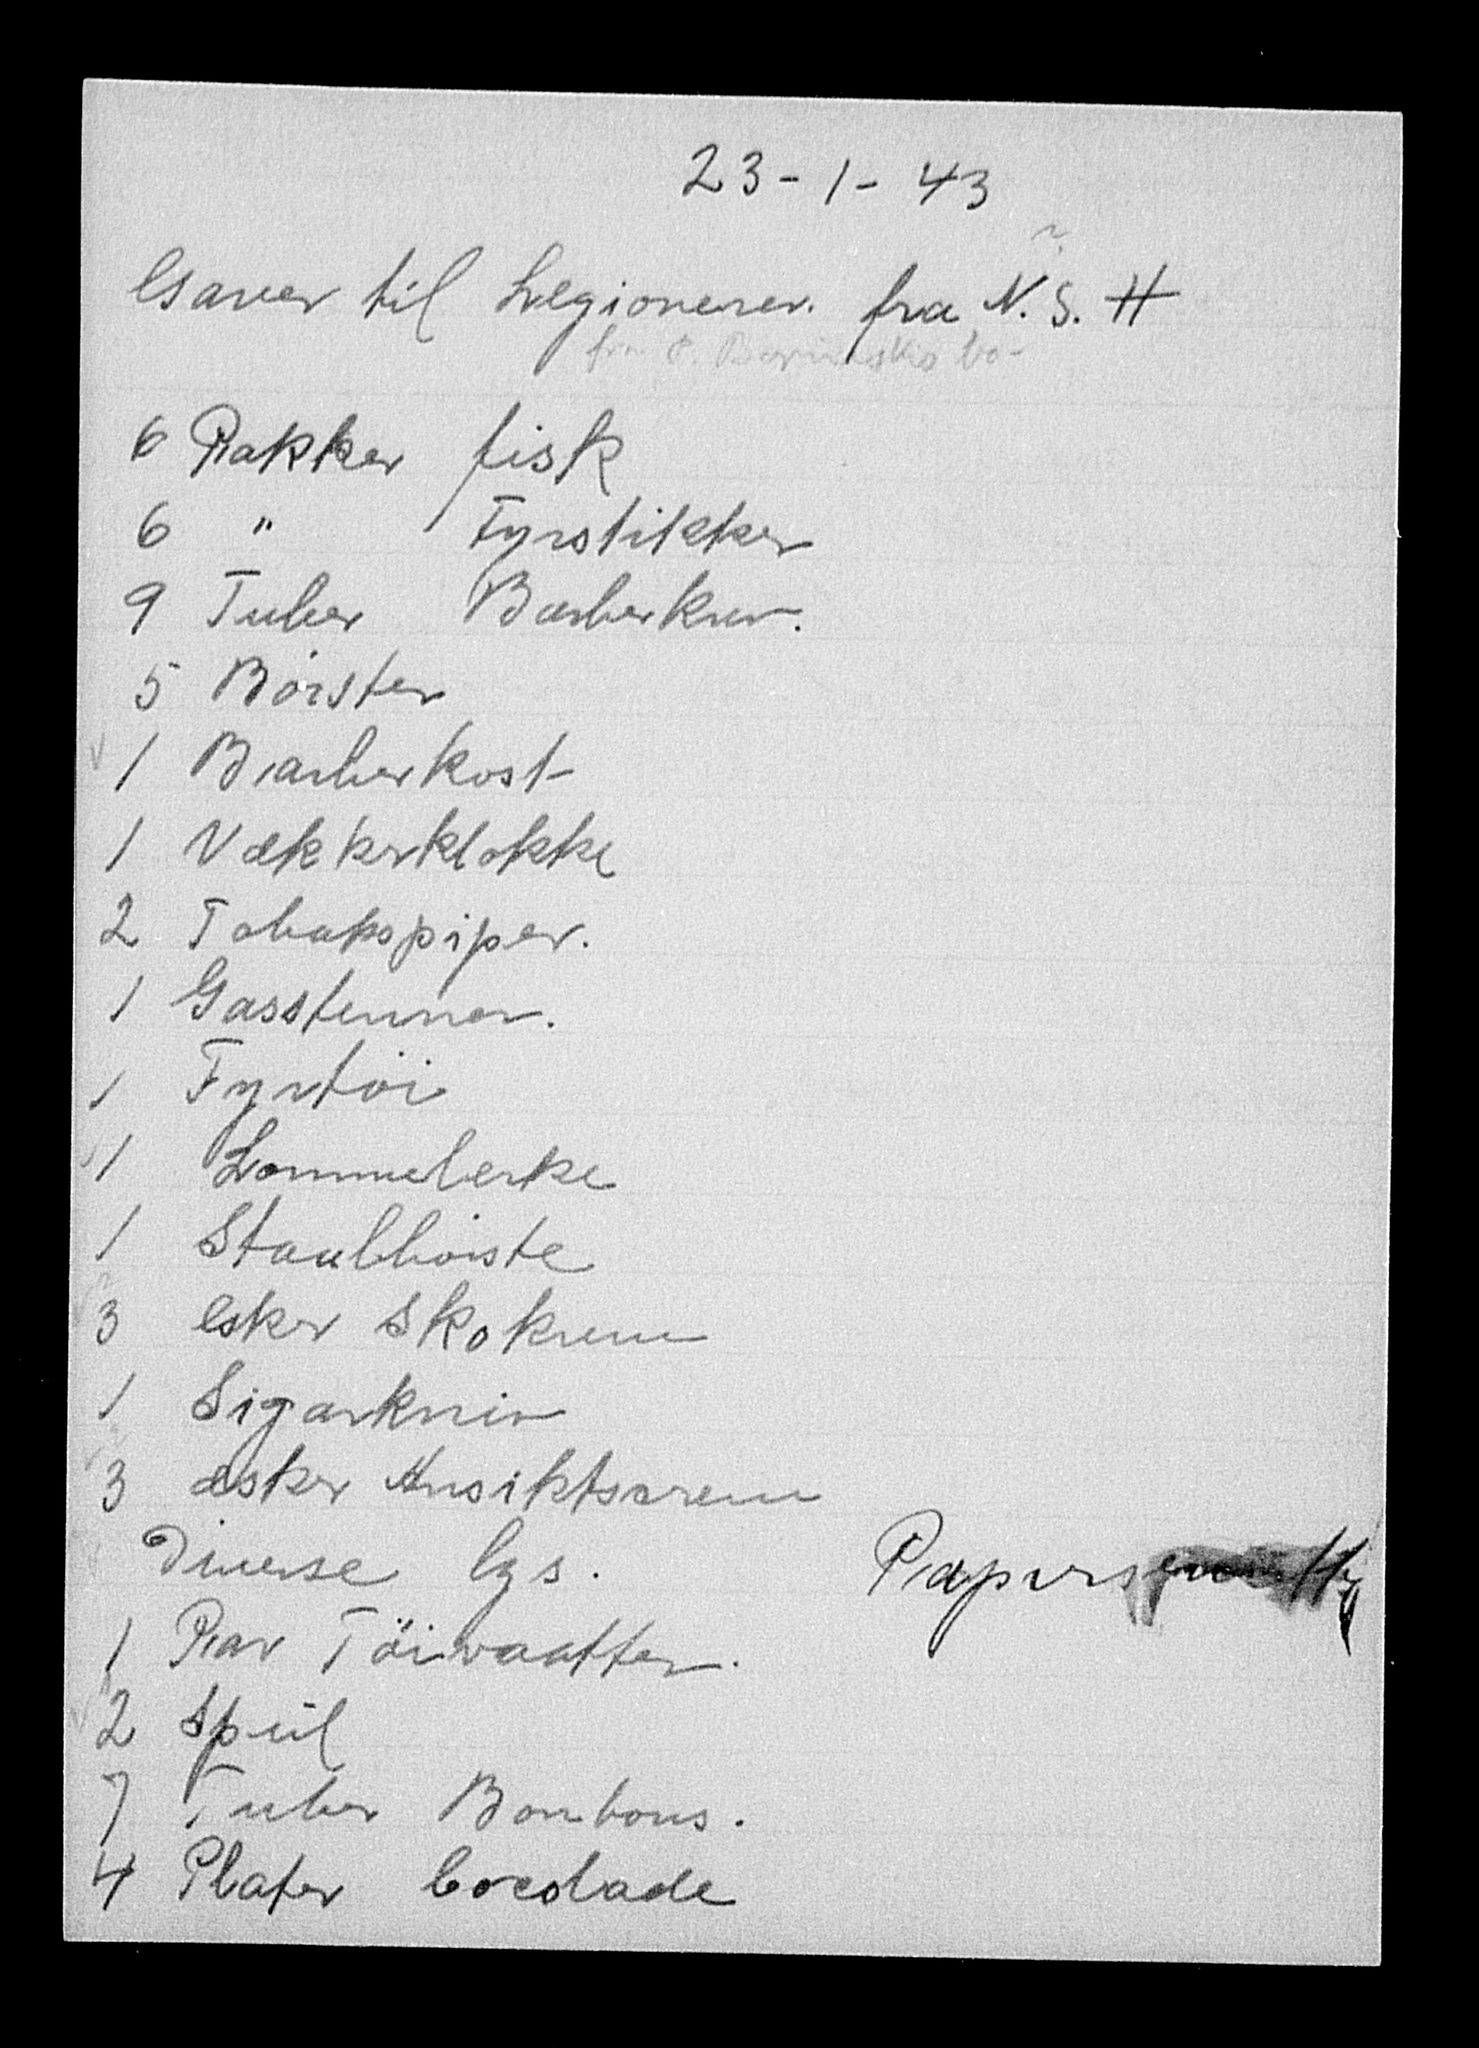 23-1-43
Gaver til Legionerer. fra N.S.H
fra
6 Pakker fisk
6 " Fyrstikker
9 Tuber Barberkrem.
5 Börster
1 Barberkost
1 Vækkerklokke
2 Tobakspiper.
1 Gasstenner.
1 Fyrtöi
1 Lommelerke
1 Staalbörste
3 esker Skokrem
1 Sigarkniv
3 æsker Ansiktscrem
Diverse lys.
1 Par Töivaatter.
2 Spil
7 Tuber Bonbons.
4 Plater Cocolade